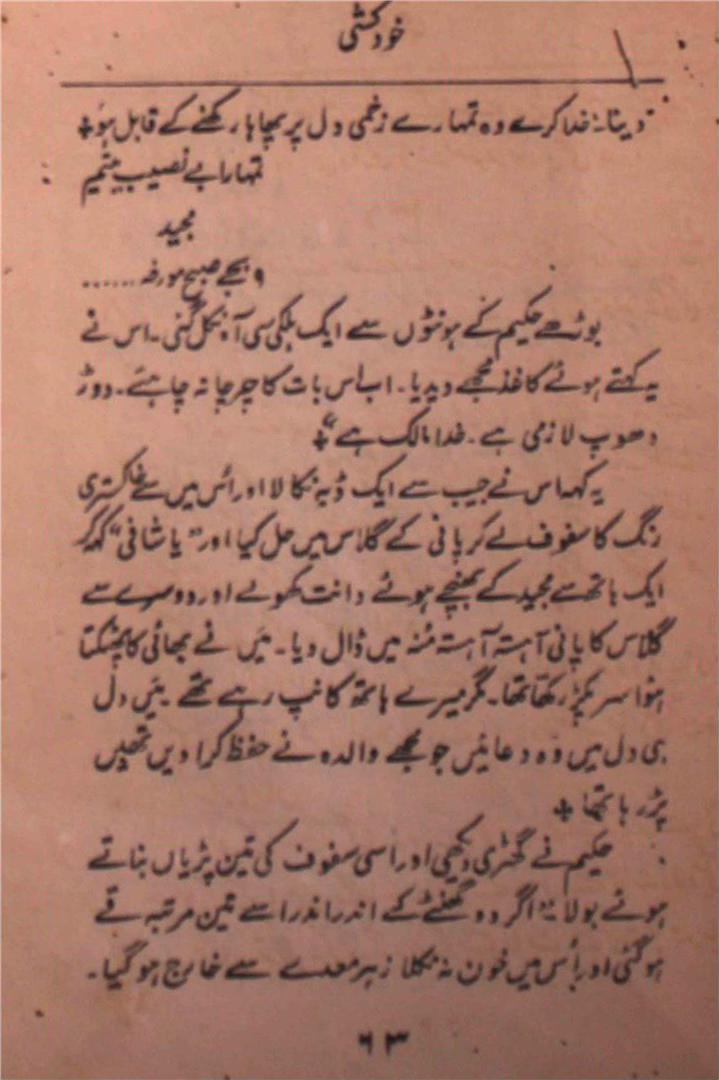 خودکشی
دینا۔ خدا کرے وہ تمہارے زخمی دل پر پھاہا رکھنے کے قابل ہو٭
تمہارا بے نصیب یتیم
مجید
۹ بجے صبح مورخہ ......
بوڑھے حکیم کے ہونٹوں سے ایک ہلکی سی آہ نکل گئی۔ اس نے
یہ کہتے ہوئے کاغذ مجھے دیدیا۔ اب اس بات کا چرچا نہ چاہئے۔ دوڑ
دھوپ لازمی ہے۔ خدا مالک ہے"٭
یہ کہہ اس نے جیب سے ایک ڈبیہ نکالا اور اُس میں سے خاکستری
رنگ کا سفوف لے کر پانی کے گلاس میں حل کیا اور "یا شافی" کہہ کر
ایک ہاتھ سے مجید کے بھنچے ہوئے دانت کھولے اور دوسرے سے
گلاس کا پانی آہستہ آہستہ مُنہ میں ڈال دیا۔ میں نے بھائی کا پٹکتا
ہؤا سر پکڑ رکھا تھا۔ مگر میرے ہاتھ کانپ رہے تھے۔ میں دل
ہی دل میں وہ دعائیں جو مجھے والدہ نے حفظ کرا دیں تھیں
پڑ رہا تھا ٭
حکیم نے گھڑی دیکھی اور اسی سفوف کی تین پڑیاں بناتے
ہوئے بولا: "اگر دو گھنٹے کے اندر اندر اسے تین مرتبہ قے
ہو گئی اور اُس میں خون نہ نکلا زہر معدے سے خارج ہو گیا۔
۶۳